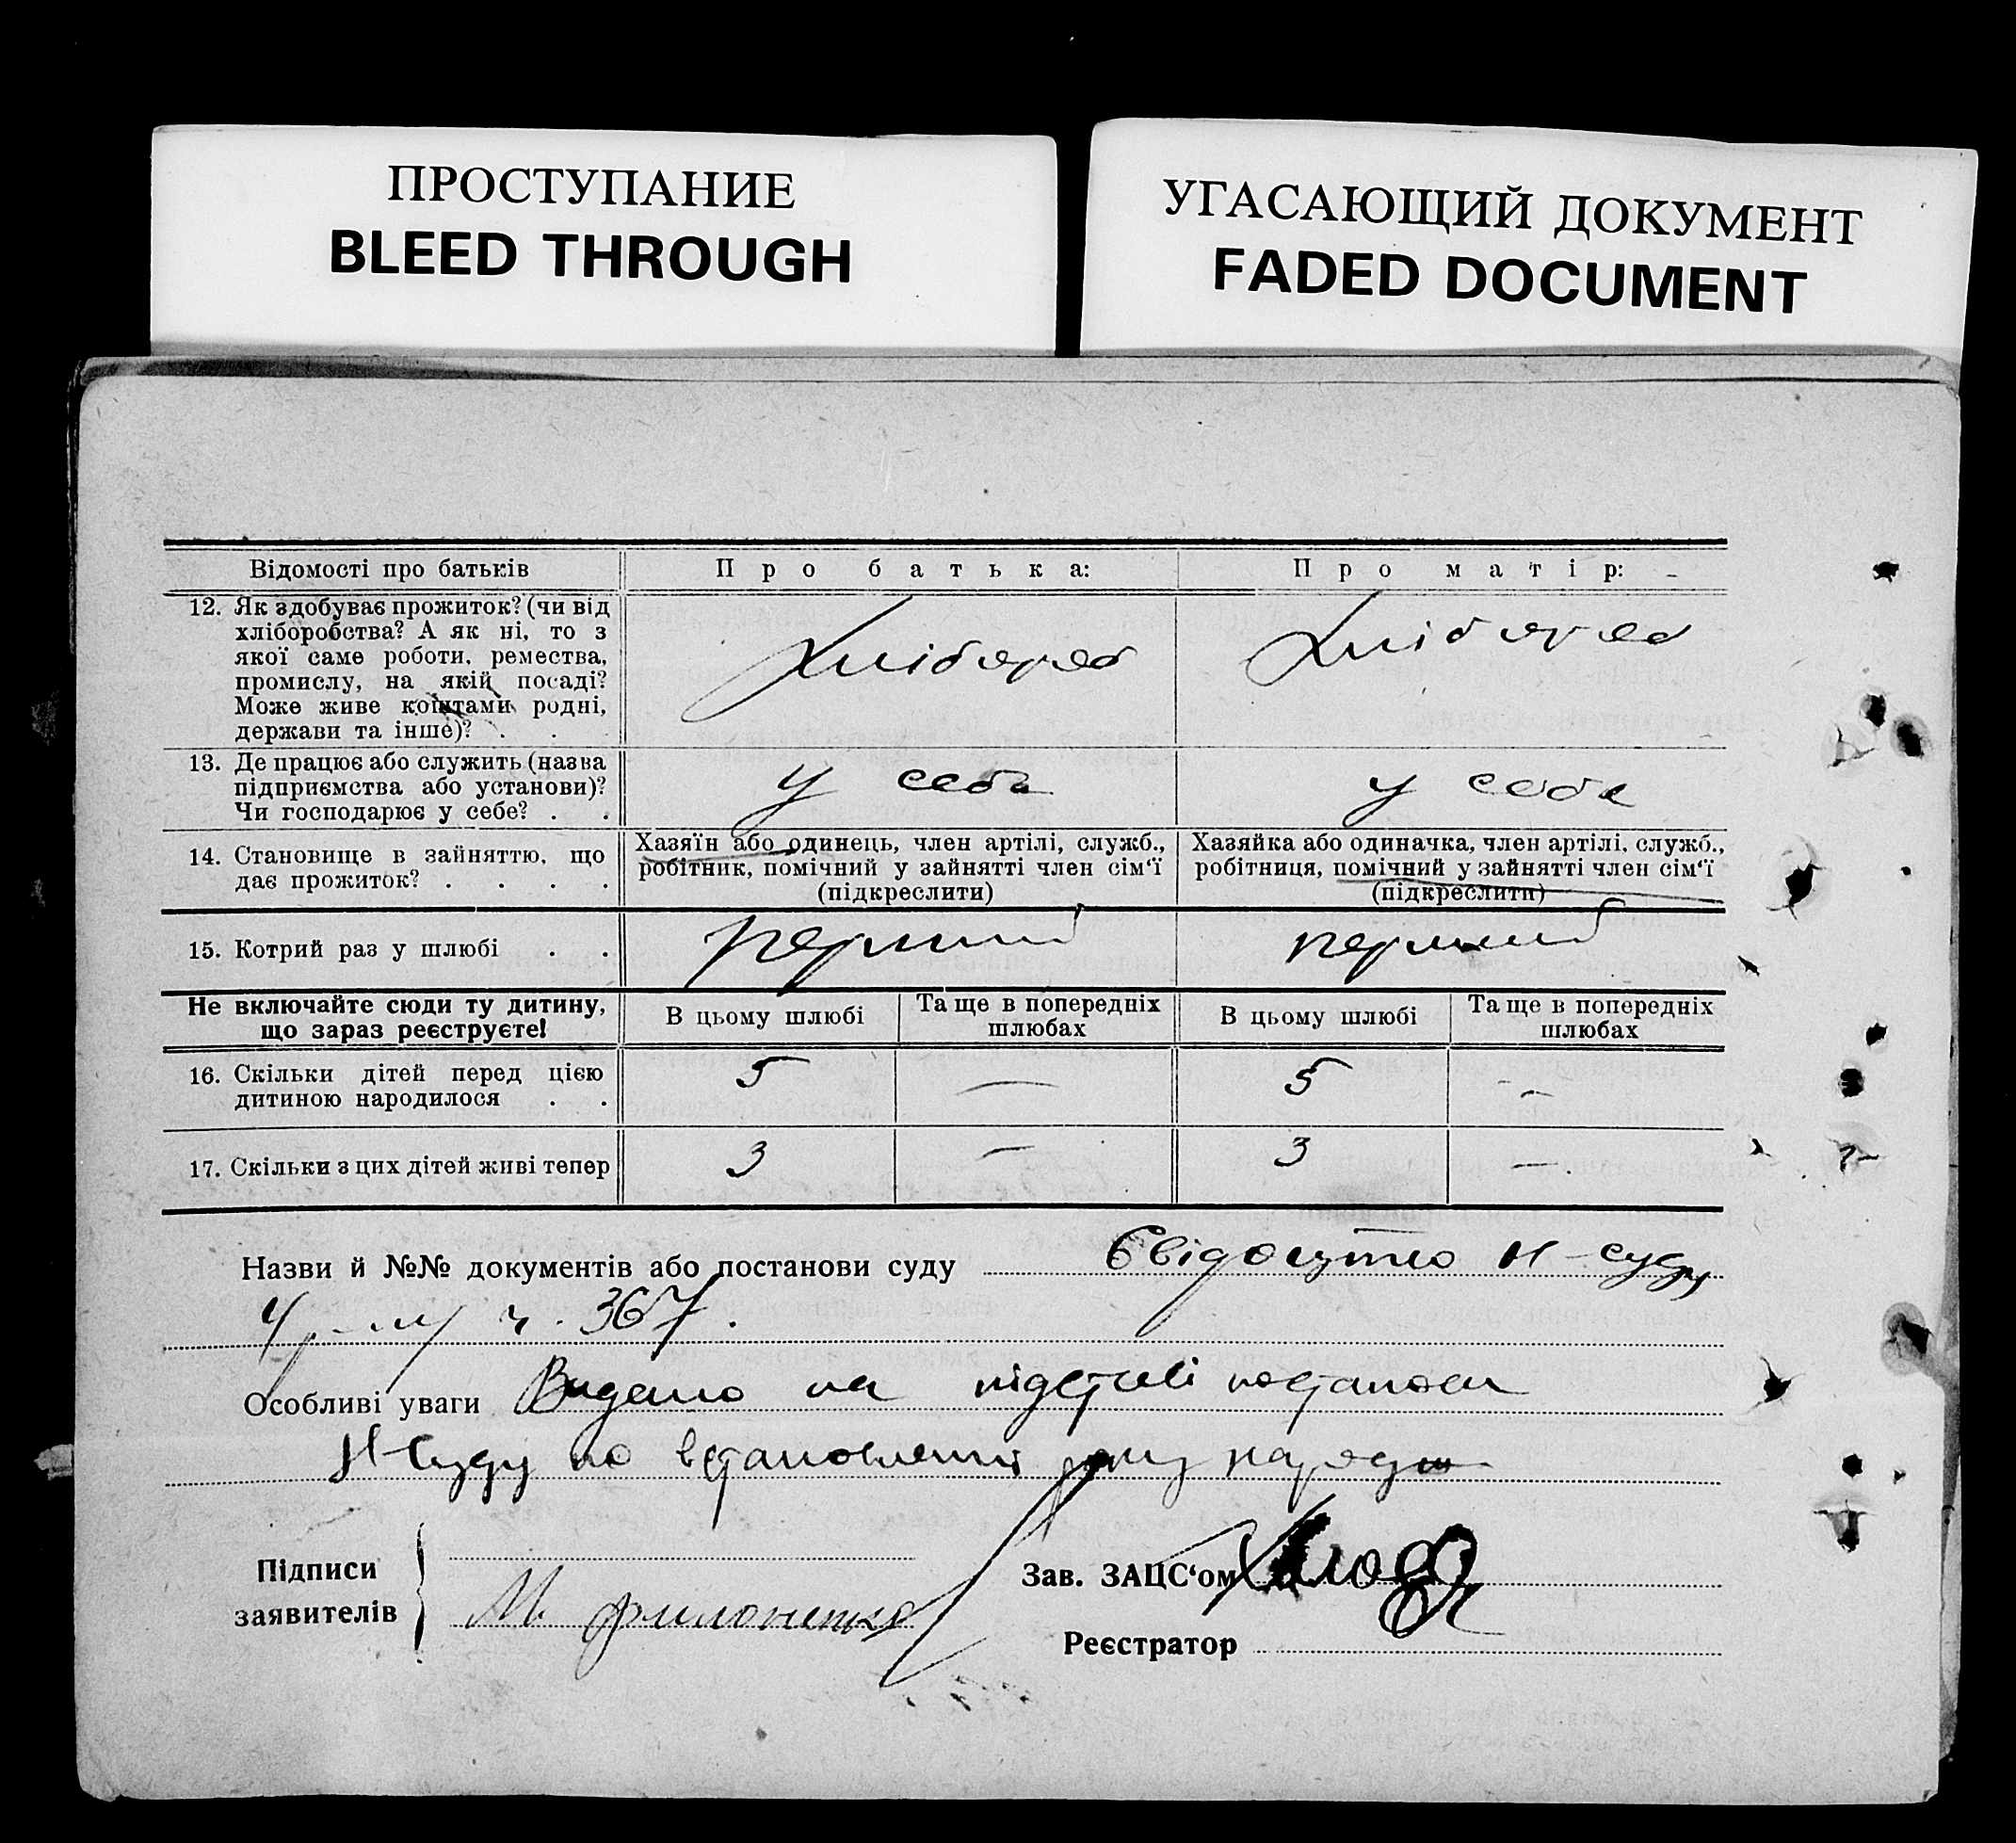 ПРОСТУПАНИЕ
BLEED THROUGH
УГАСАЮЩИЙ ДОКУМЕНТ
FADED DOCUMENT
Відомості про батьків
Про батька:
Про матір:
12. Як здобуває прожиток? (чи від
хліборобства? А як ні, то з
якої саме роботи, ремества,
промислу, на якій посаді?
Може живе коштами родні,
держави та інше)? . .
Хлібороб
Хлібороб
13. Де працює або служить (назва
підприємства або установи)?
Чи господарює у себе? . .
у себе
у себе
14. Становище в зайняттю, що
дає прожиток? . . . .
Хазяїн або одинець, член артілі, служб.,
робітник, помічний у зайнятті член сім'ї
(підкреслити)
Хазяйка або одиначка, член артілі, служб.,
робітниця, помічний у зайнятті член сім'ї
(підкреслити)
15. Котрий раз у шлюбі . .
перший
перший
Не включайте сюди ту дитину,
що зараз реєструєте!
В цьому шлюбі
Та ще в попередніх
шлюбах
В цьому шлюбі
Та ще в попередніх
шлюбах
16. Скільки дітей перед цією
дитиною народилося . .
5
—
5
—
17. Скільки з цих дітей живі тепер
3
—
3
—.
Назви й №№ документів або постанови суду Свідоцтво Н-суду
ч. 367.
Особливі уваги Видано на підставі постанови
Н-Суду по встановленні року народж
Підписи
заявителів
М. Филоненко
Зав. ЗАЦС'ом
Реєстратор